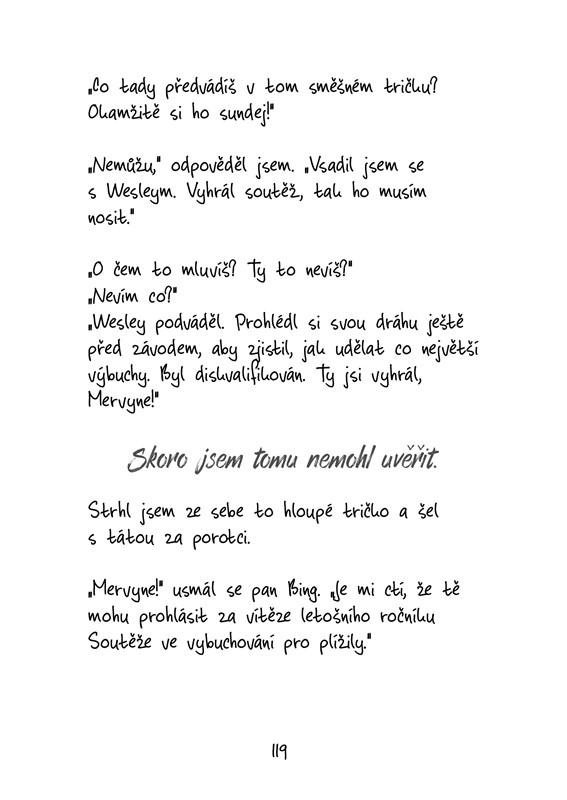 „Co tady předvádíš v tom směšném tričku?
Okamžitě si ho sundej!"
„Nemůžu," odpověděl jsem. „Vsadil jsem se
s Wesleym. Vyhrál soutěž, tak ho musím
nosit."
„O čem to mluvíš? Ty to nevíš?"
„Nevím co?"
„Wesley podváděl. Prohlédl si svou dráhu ještě
před závodem, aby zjistil, jak udělat co největší
výbuchy. Byl diskvalifikován. Ty jsi vyhrál,
Mervyne!"
Skoro jsem tomu nemohl uvěřit.
Strhl jsem ze sebe to hloupé tričko a šel
s tátou za porotci.
„Mervyne!" usmál se pan Bing. „Je mi ctí, že tě
mohu prohlásit za vítěze letošního ročníku
Soutěže ve vybuchování pro plížily."
119